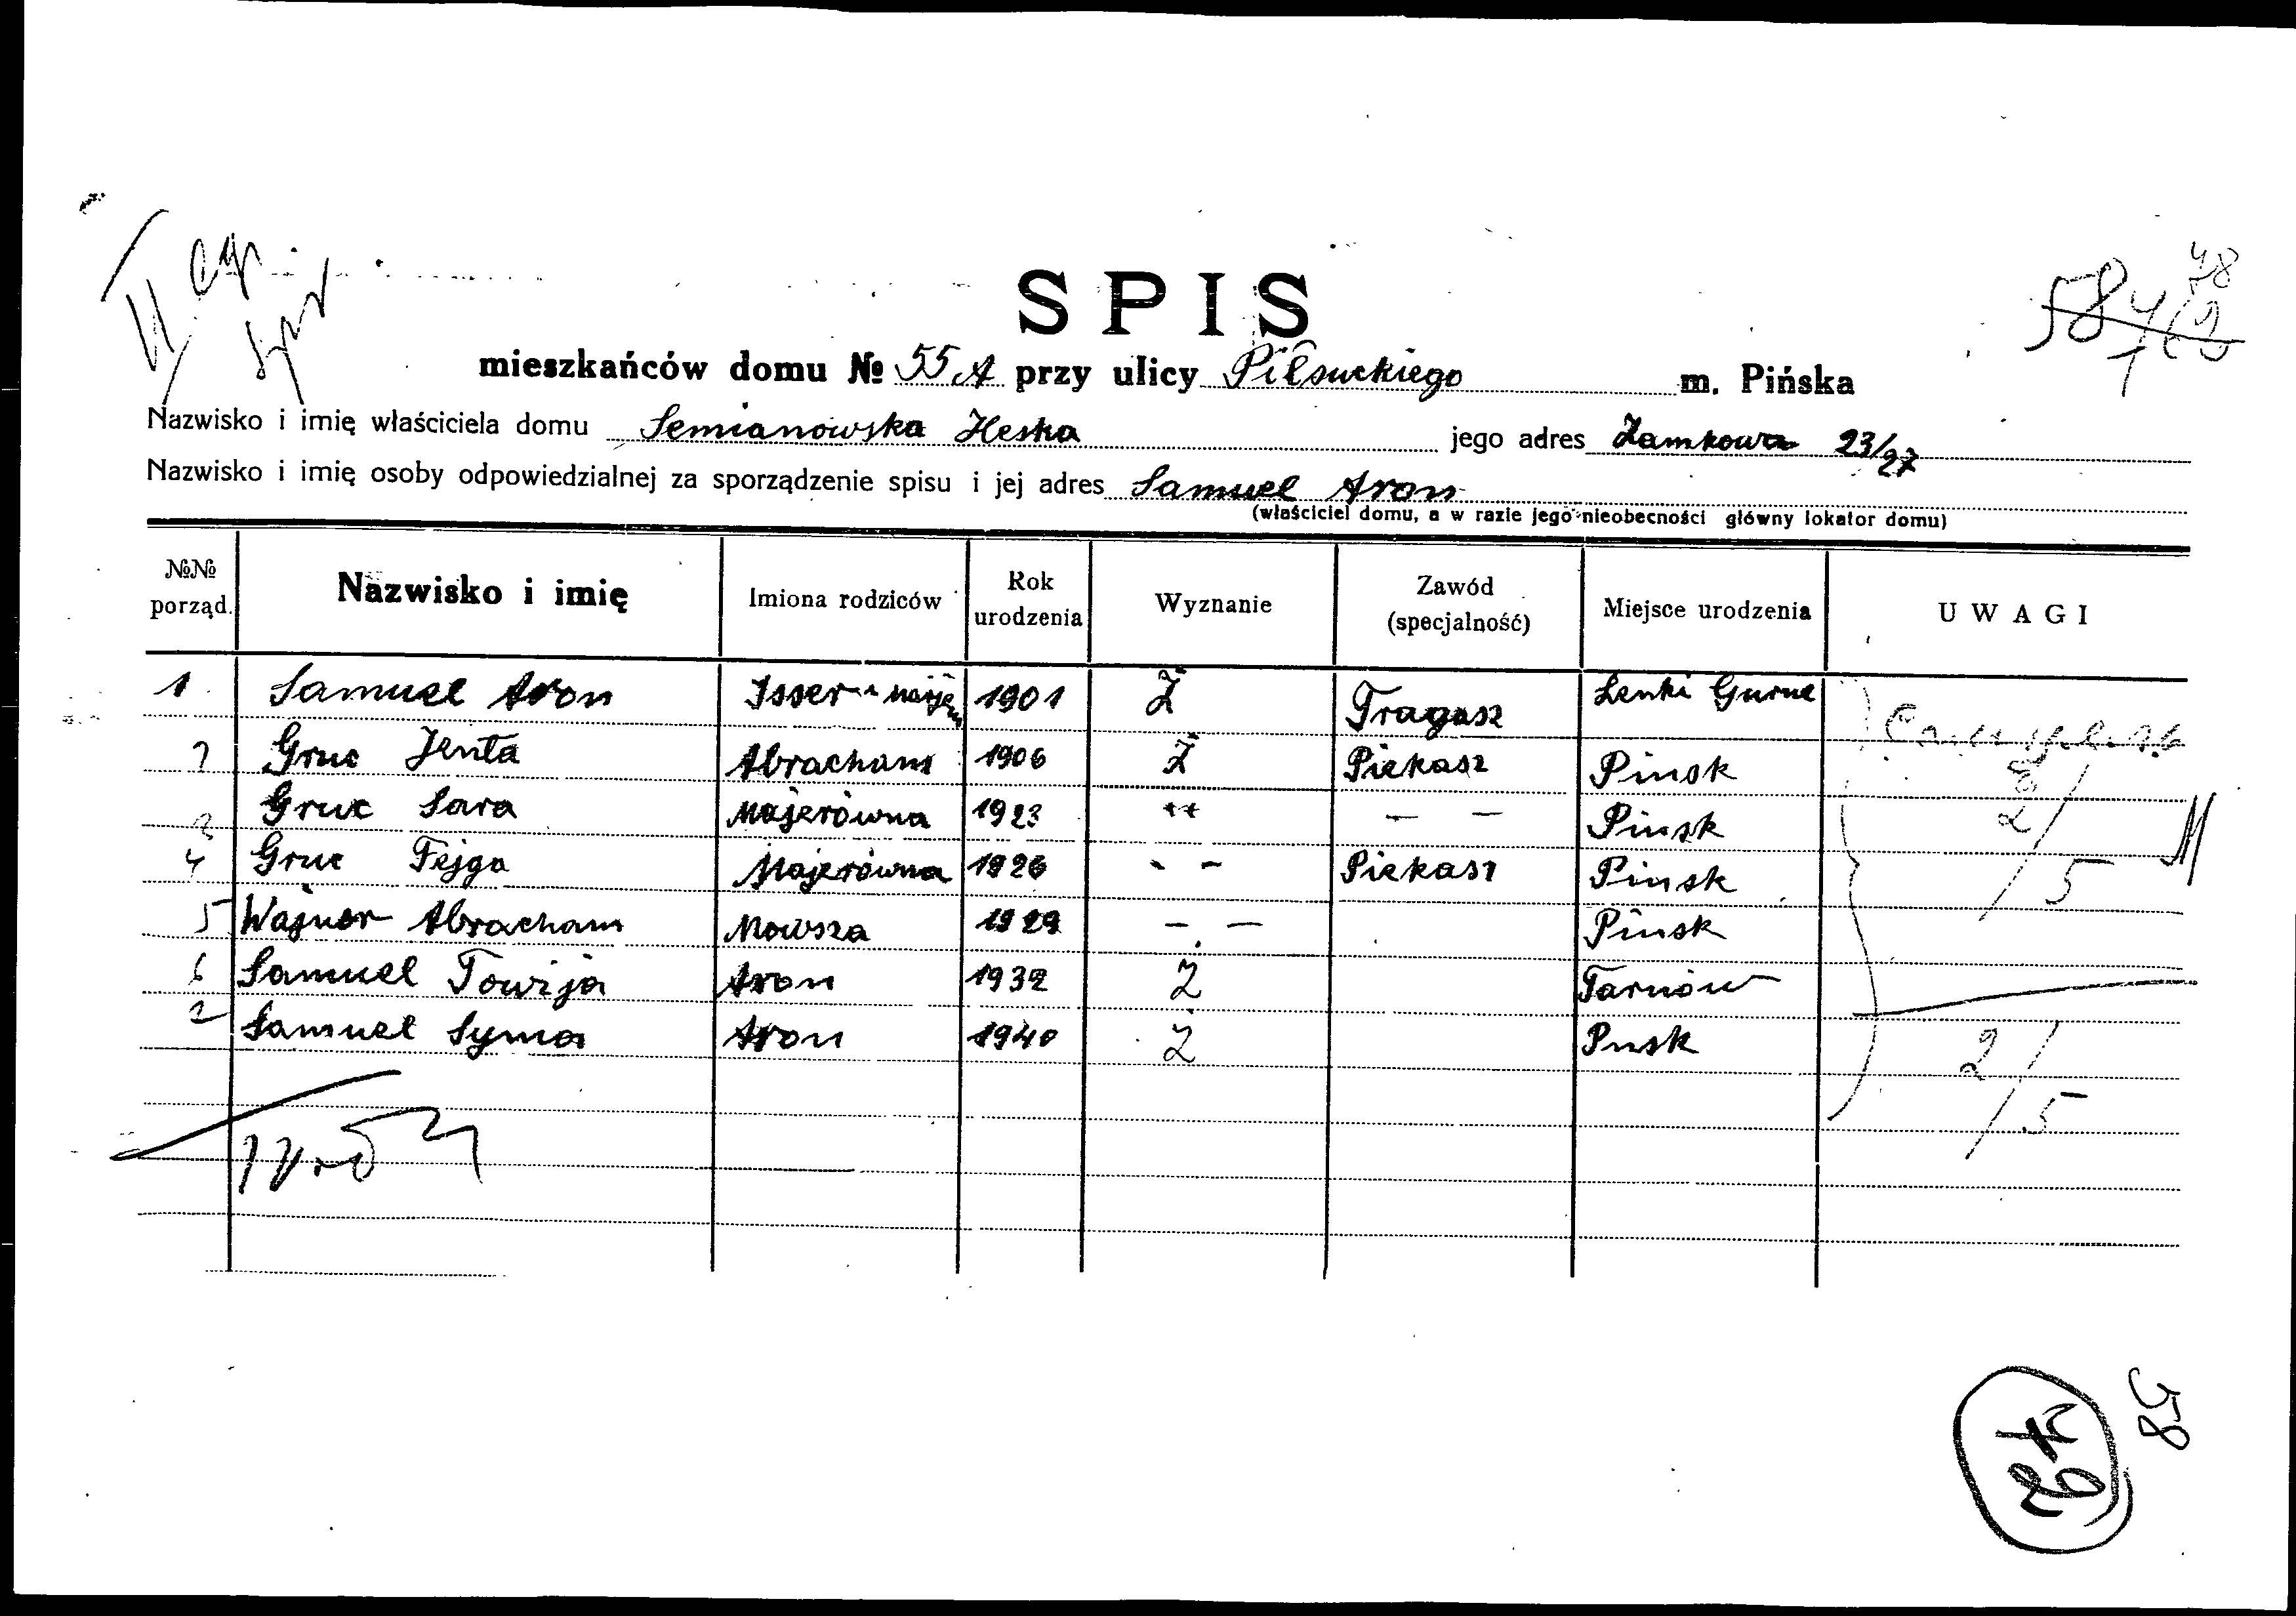 48
58
SPIS
mieszkańców domu № 55 A przy ulicy Piłsuckiego m. Pińska
Nazwisko i imię właściciela domu Semianowska Heska jego adres Zamkowa 23/27
Nazwisko i imię osoby odpowiedzialnej za sporządzenie spisu i jej adres Samuel Aron
(właściciel domu, a w razie jego nieobecności główny lokator domu)
№№ porząd. Nazwisko i imię Imiona rodziców Rok urodzenia Wyznanie Zawód (specjalność) Miejsce urodzenia UWAGI
1 Samuel Aron Isser 1901 Ż Tragasz Lenki Gurne
Gruc Jenta Abracham 1906 Ż Piekasz Pinsk
3 Gruc Sara Majerówna 1923 " — — Pinsk
4 Gruc Fejga Majerówna 1926 - - Piekasz Pinsk
5 Wajner Abracham Mowsza 1929 — — Pinsk
6 Samuel Towija Aron 1932 Ż Tarnów
Samuel Syma Aron 1940 Ż Pnsk
2/5
2/5
58